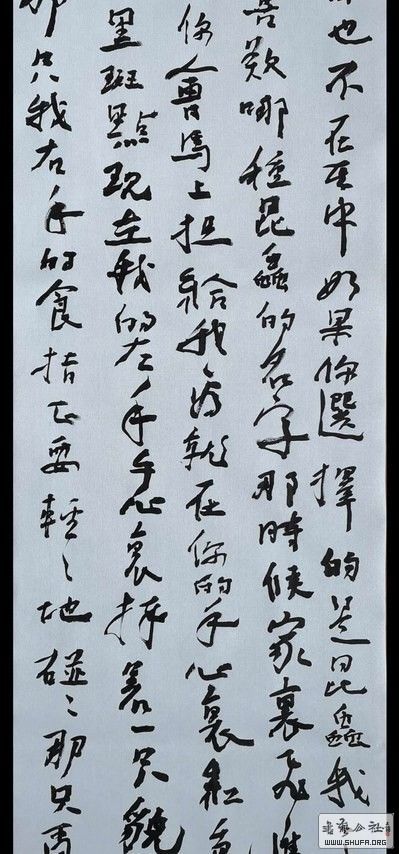 也不在其中如果你選擇的是昆蟲我
喜歡哪種昆蟲的名字那時候家裏飛進
你會馬上給我就在你的手心裏紅
黑斑點現在我的左手手心裏捧着一只貌
那只我右手的食指正要輕輕地碰碰那只
書法公社
WWW.SHUFA.ORG